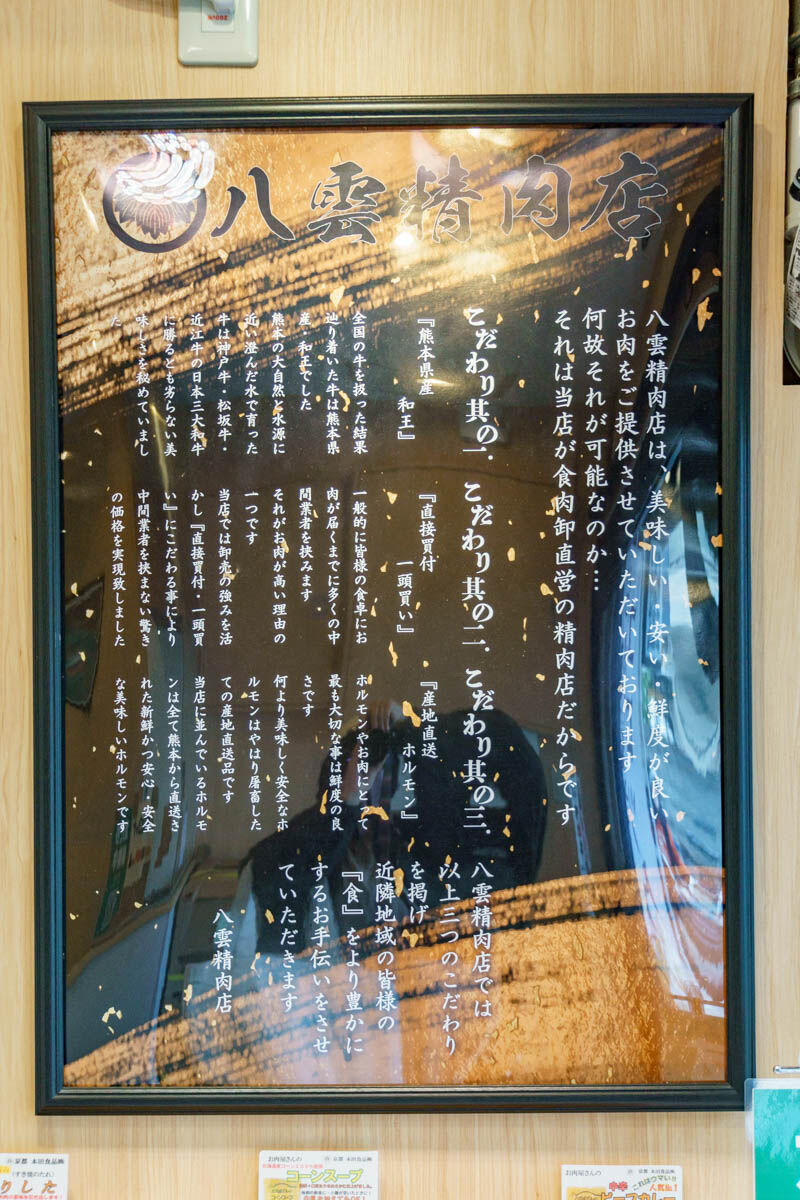 八雲精肉店
八雲精肉店は、美味しい・安い・鮮度が良い
お肉をご提供させていただいております
何故それが可能なのか…
それは当店が食肉卸直営の精肉店だからです
こだわり其の一.
『熊本県産
和王』
全国の牛を扱った結果
辿り着いた牛は熊本県
産・和王でした
熊本の大自然と水源に
近い澄んだ水で育った
牛は神戸牛・松坂牛・
近江牛の日本三大和牛
に勝るとも劣らない美
味しさを秘めていまし
た
こだわり其の二.
『直接買付
一頭買い』
一般的に皆様の食卓にお
肉が届くまでに多くの中
間業者を挟みます
それがお肉が高い理由の
一つです
当店では卸売の強みを活
かし『直接買付・一頭買
い』にこだわる事により
中間業者を挟まない驚き
の価格を実現致しました
こだわり其の三.
『産地直送
ホルモン』
ホルモンやお肉にとって
最も大切な事は鮮度の良
さです
何より美味しく安全なホ
ルモンはやはり屠畜した
ての産地直送品です
当店に並んでいるホルモ
ンは全て熊本から直送さ
れた新鮮かつ安心・安全
な美味しいホルモンです
八雲精肉店では
以上三つのこだわり
を掲げ
近隣地域の皆様の
『食』をより豊かに
するお手伝いをさせ
ていただきます
八雲精肉店
京都 本田食品㈱
(すき焼のたれ)
りした
お肉屋さんの
京都 本田食品㈱
コーンスープ
お肉屋さんの
京都 本田食品㈱
これはウマい!!
人気No.1
ビーフカレー